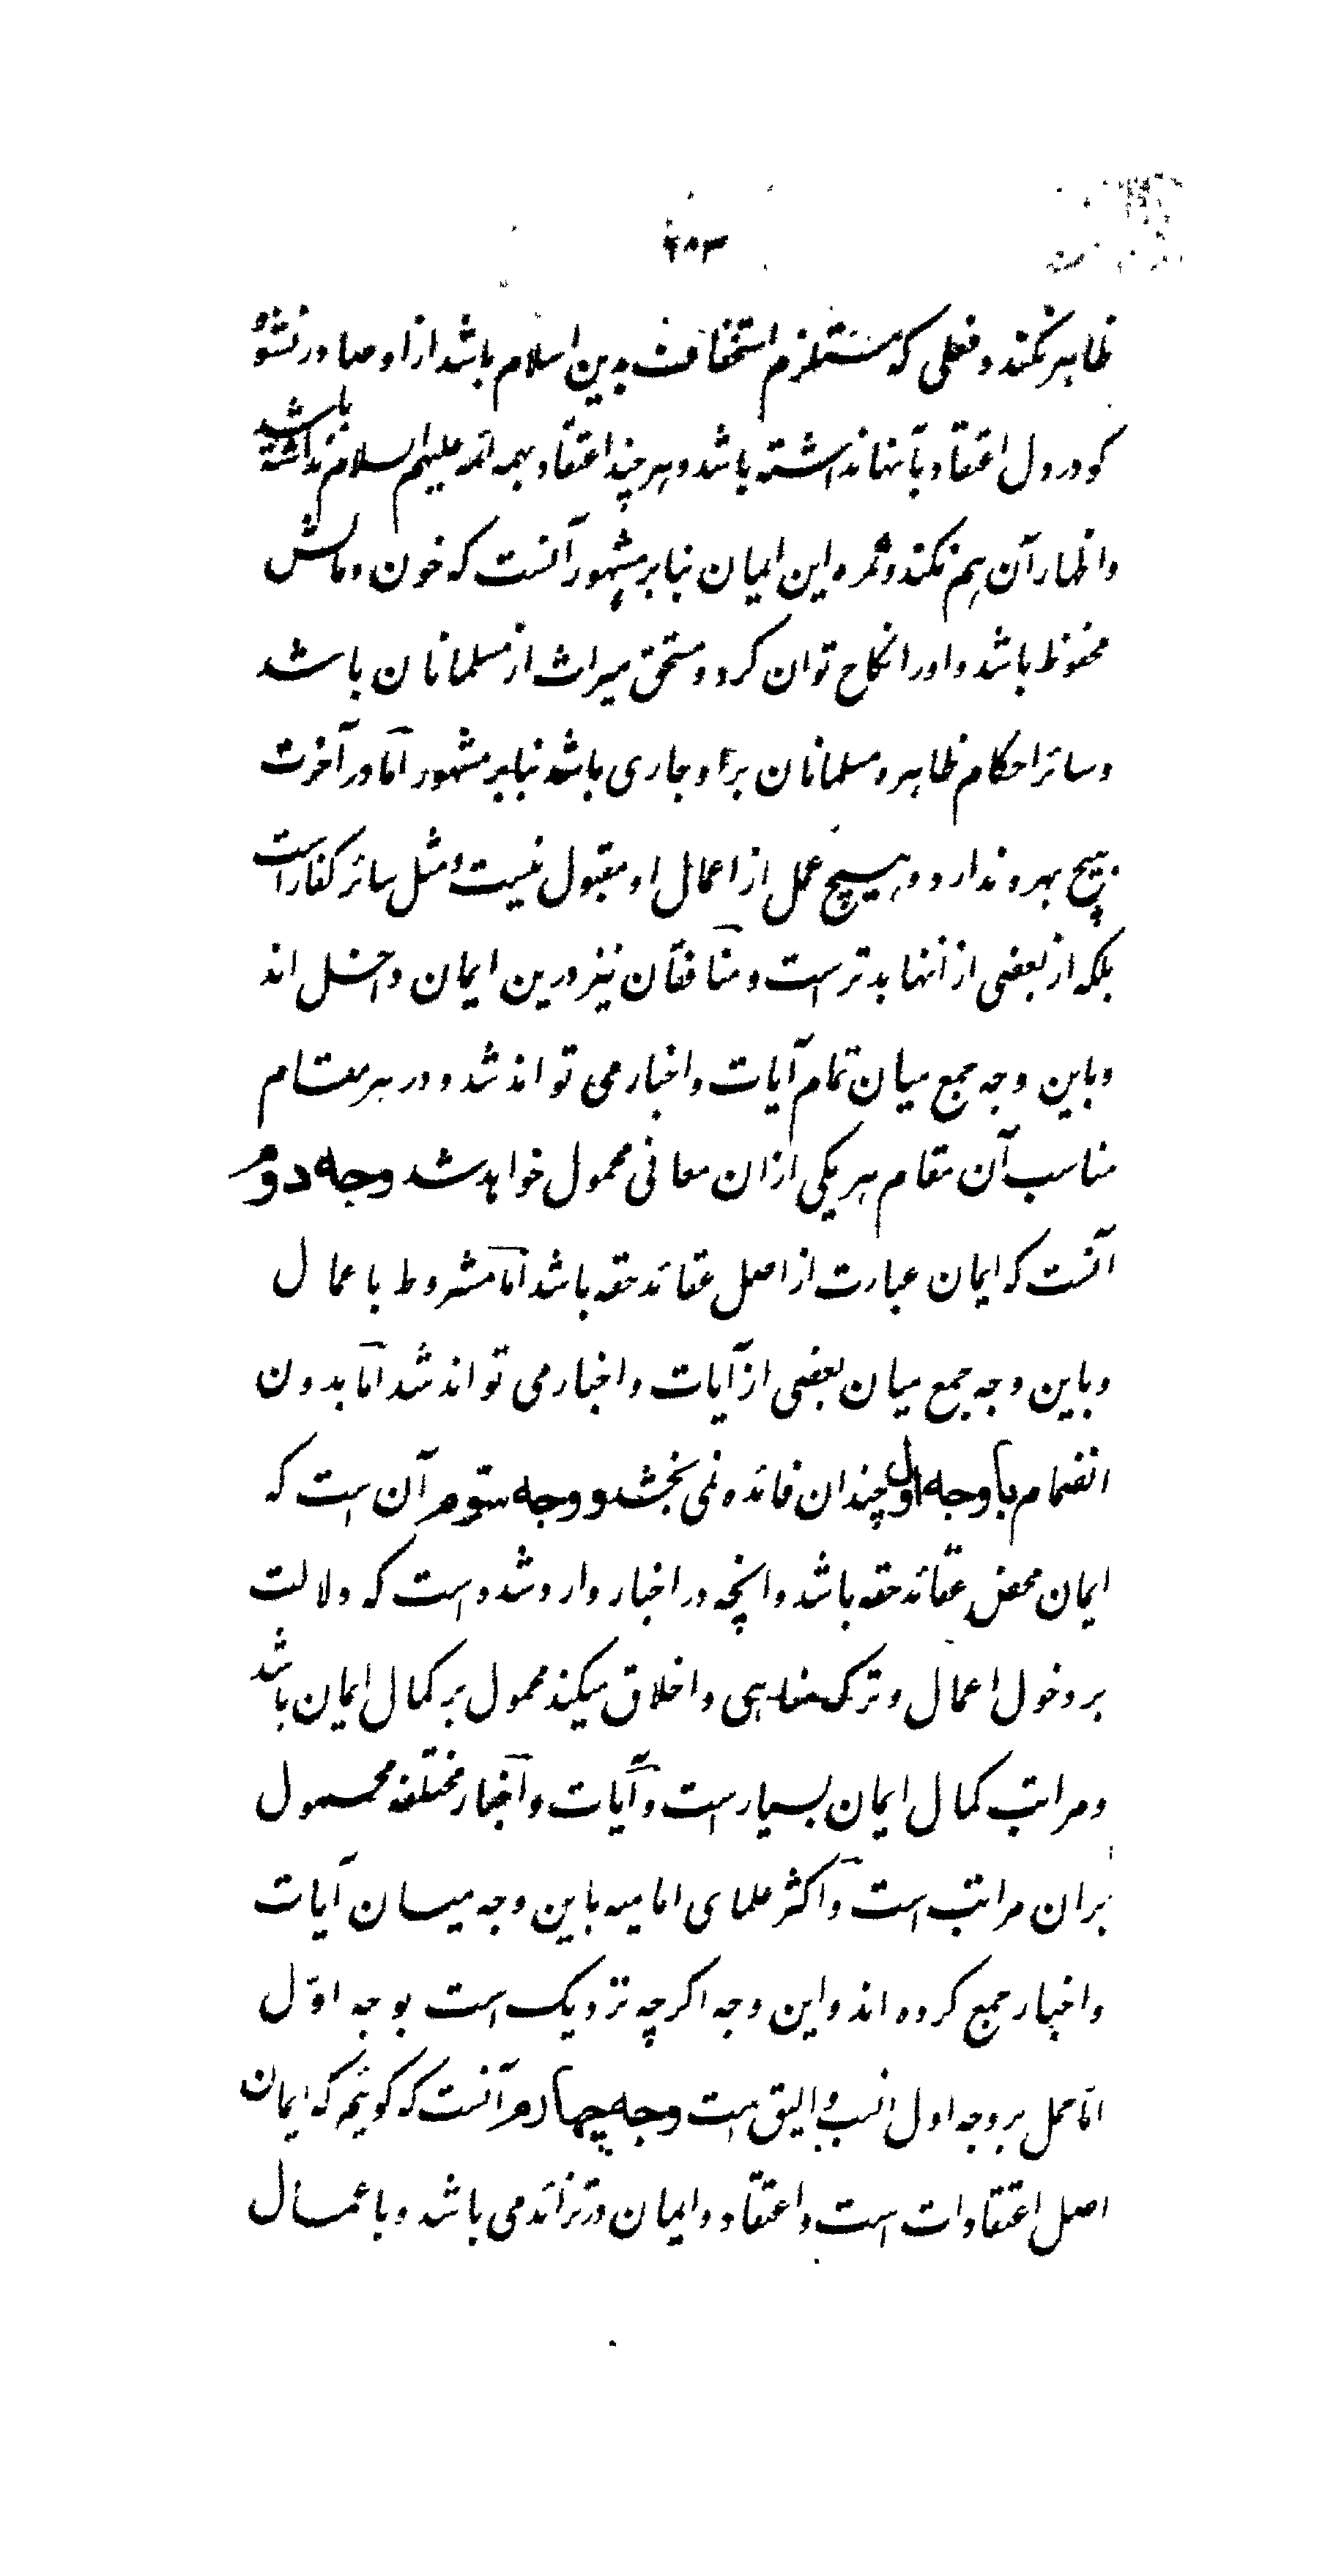 ۲۸۳
ظاهر نکند و فعلی که مستلزم استخفاف بدین اسلام باشد از او صادر نشود
کو در دل اعتقاد بآنها نداشته باشد و هر چند اعتقاد بهمه ائمه علیهم السلام نداشته باشد
و اظهار آن هم نکند و ثمره این ایمان بنابر مشهور آنست که خون و مالش
محفوظ باشد و او را نکاح توان کرد و مستحق میراث از مسلمانان باشد
و سائر احکام ظاهره مسلمانان بر او جاری باشد بنابر مشهور اما در آخرت
هیچ بهره ندارد و هیچ عمل از اعمال او مقبول نیست و مثل سائر کفار است
بلکه از بعضی از آنها بدتر است و منافقان نیز درین ایمان داخل اند
و باین وجه جمع میان تمام آیات و اخبار می تواند شد و در هر مقام
مناسب آن مقام هر یکی از ان معانی محمول خواهد شد وجه دوم
آنست که ایمان عبارت از اصل عقائد حقه باشد اما مشروط باعمال
و باین وجه جمع میان بعضی از آیات و اخبار می تواند شد اما بدون
انضمام با وجه اول چندان فائده نمی بخشد و وجه سوم آن است که
ایمان محض عقائد حقه باشد و انچه در اخبار وارد شده است که دلالت
بر دخول اعمال و ترک مناهی و اخلاق میکند محمول بر کمال ایمان باشد
و مراتب کمال ایمان بسیار است و آیات و اخبار مختلفه محمول
بران مراتب است و اکثر علمای امامیه باین وجه میان آیات
و اخبار جمع کرده اند و این وجه اکرچه نزدیک است بوجه اوّل
امّا حمل بر وجه اول انسب و الیق است وجه چهارم آنست که کوئیم که ایمان
اصل اعتقادات است و اعتقاد و ایمان در تزائد می باشد و باعمال